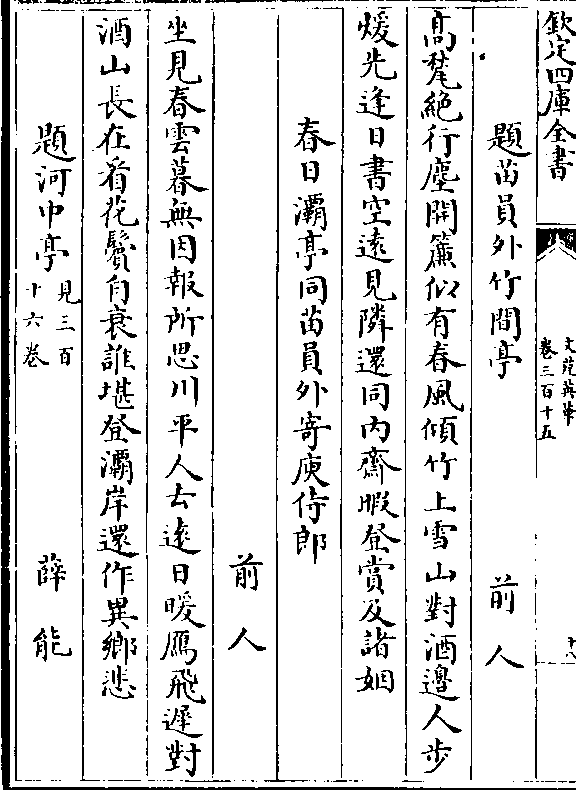 欽定四庫全書
文苑英華
卷三百十五
十八
題苗員外竹間亭
前人
高䕺絶行塵開簾似有春風傾竹上雪山對酒邊人步
煖先逢日書空遠見隣還同内齋暇登賞及諸姻
春日灞亭同苗員外寄庾侍郎
前人
坐見春雲暮無因報所思川平人去遠日暖鴈飛遲對
酒山長在看花鬢自衰誰堪登灞岸還作異鄉悲
題河中亭見三百
十六卷
薛能